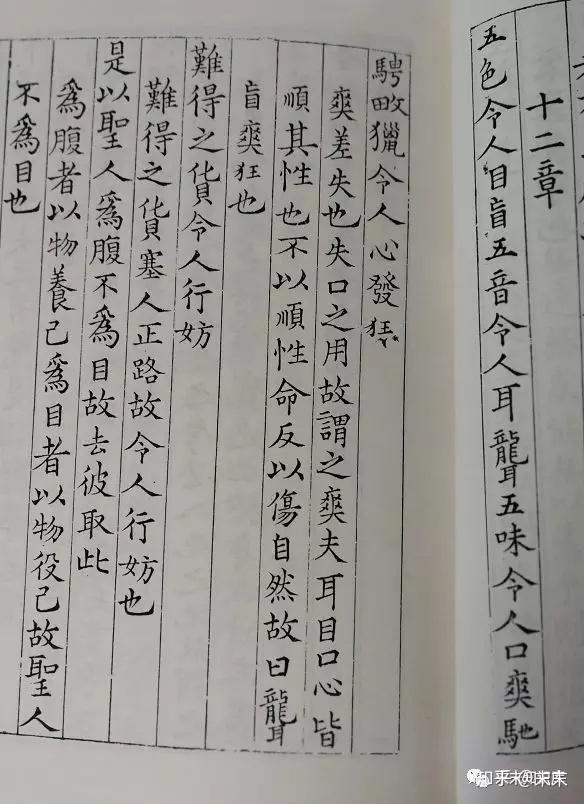 十二章
五色令人目盲五音令人耳聾五味令人口爽馳
騁畋獵令人心發狂
爽差失也失口之用故謂之爽夫耳目口心皆
順其性也不以順性命反以傷自然故曰聾
盲爽狂也
難得之貨令人行妨
難得之貨塞人正路故令人行妨也
是以聖人爲腹不爲目故去彼取此
爲腹者以物養己爲目者以物役己故聖人
不爲目也